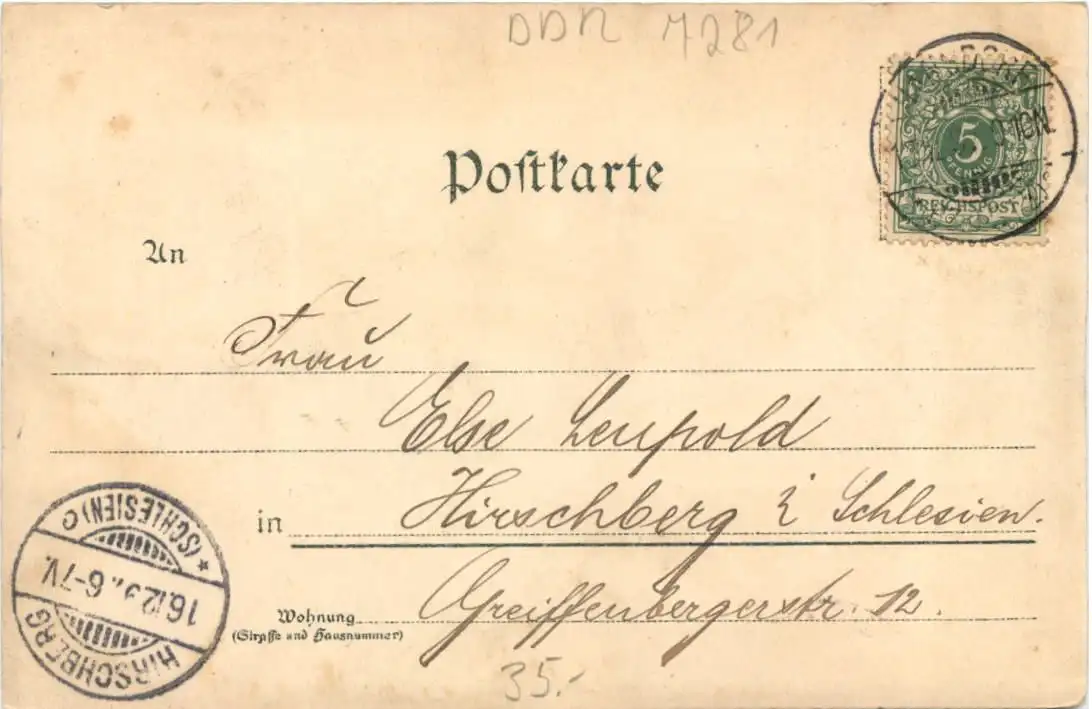 DDR 7281
Postkarte
5
PFENNIG
REICHSPOST
An
Frau
Else Leupold
in Hirschberg i Schlesien.
Wohnung
(Strasse und Hausnummer)
Greiffenbergerstr. 12.
HIRSCHBERG
16.12.9 6-7V.
*(SCHLESIEN) C
35.-